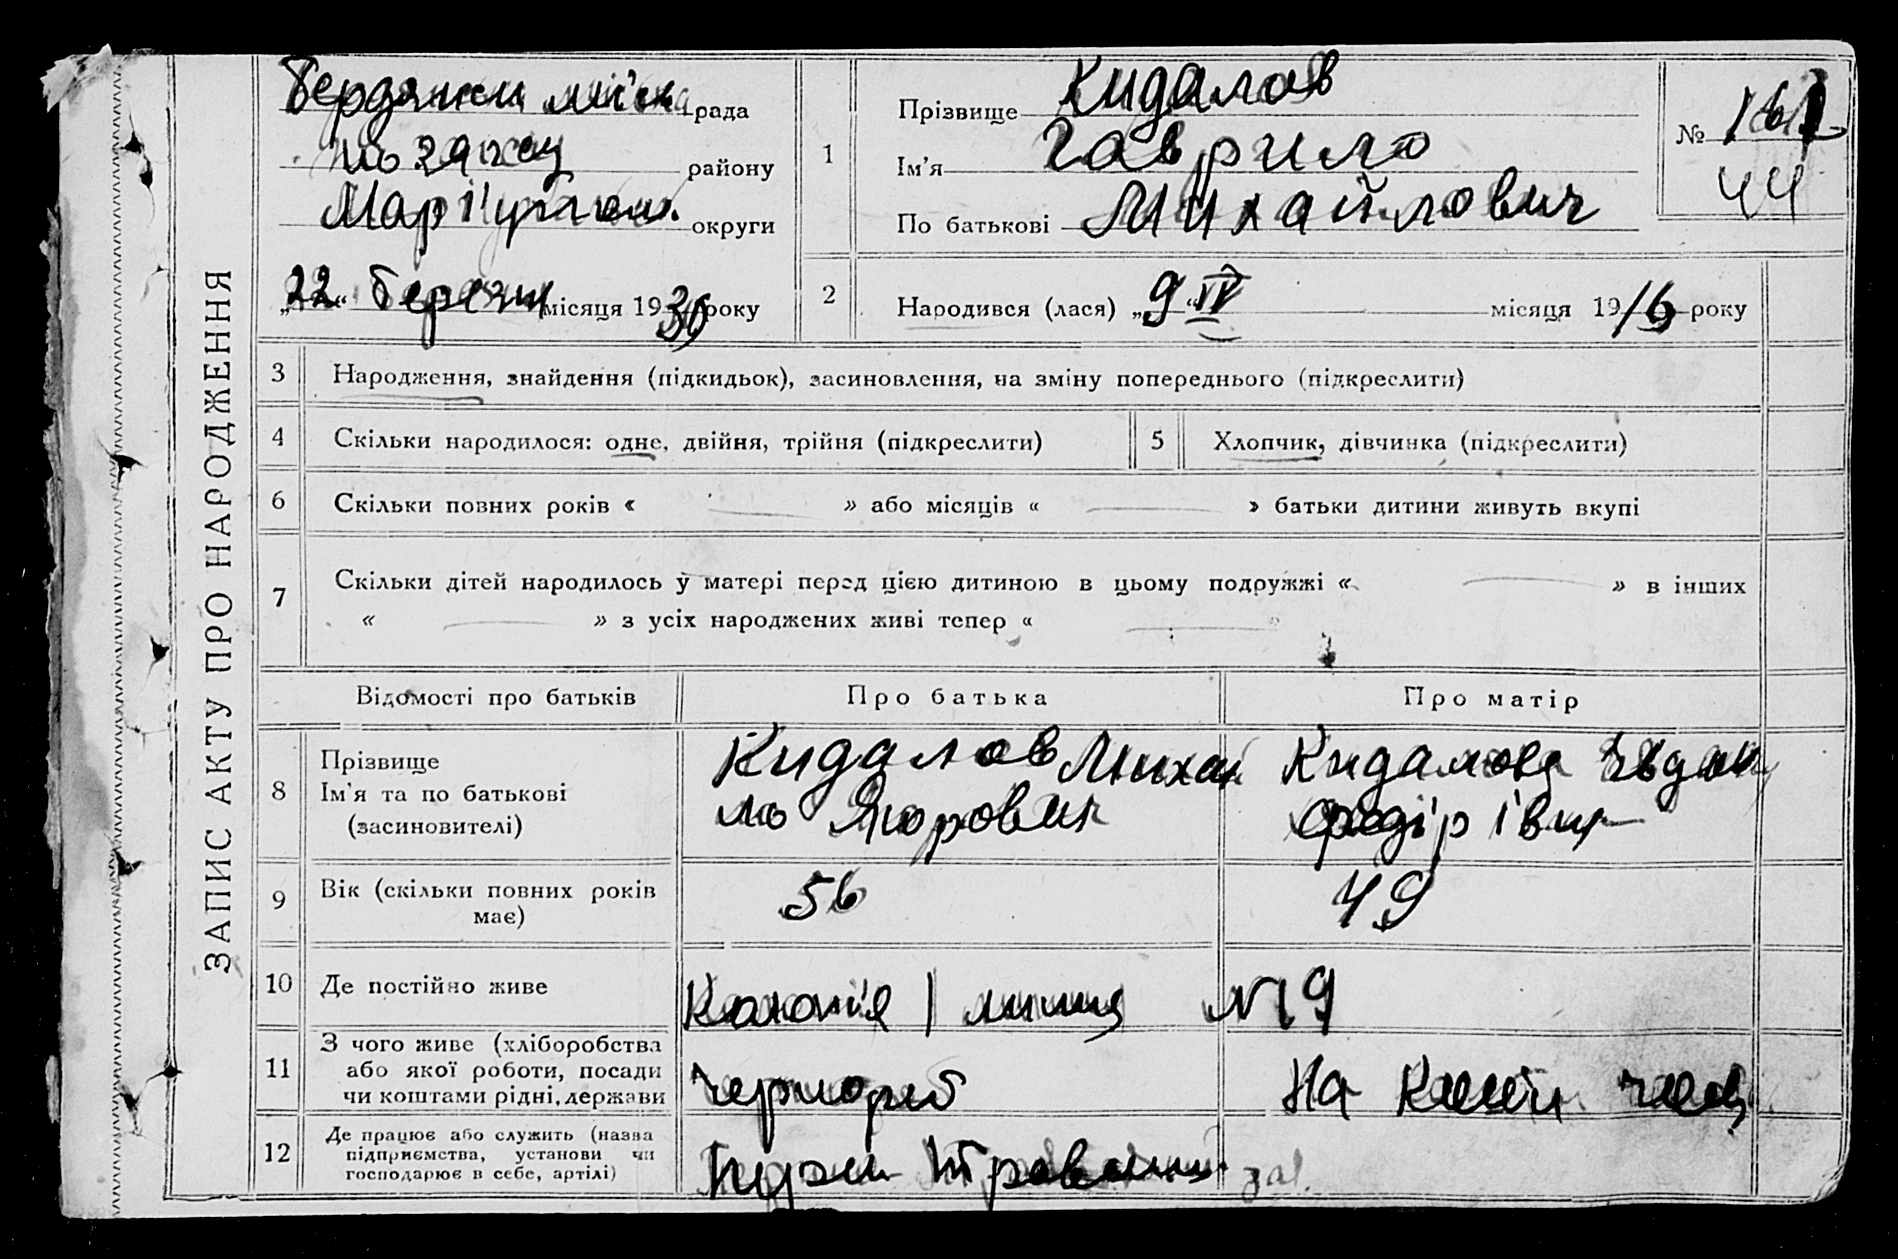 ЗАПИС АКТУ ПРО НАРОДЖЕННЯ
Бердянськ міська рада
району
Маріупільськ. округи
„22“ березня місяця 1930 року
1
Прізвище Кидалов
Ім'я Гаврило
По батькові Михайлович
№ 161
44
2
Народився (лася) „9“ IV місяця 1916 року
3 Народження, знайдення (підкидьок), засиновлення, на зміну попереднього (підкреслити)
4 Скільки народилося: одне, двійня, трійня (підкреслити)
5 Хлопчик, дівчинка (підкреслити)
6 Скільки повних років « — » або місяців « — » батьки дитини живуть вкупі
7 Скільки дітей народилось у матері перед цією дитиною в цьому подружжі « — » в інших
« — » з усіх народжених живі тепер « — »
Відомості про батьків
Про батька
Про матір
8 Прізвище
Ім'я та по батькові
(засиновителі)
Кидалов Михай
ло
Кидалова
Федірівна
9 Вік (скільки повних років
має)
56
49
10 Де постійно живе
Колонія 1 линия №19
11 З чого живе (хліборобства
або якої роботи, посади
чи коштами рідні, держави
Чорнороб
На
12 Де працює або служить (назва
підприємства, установи чи
господарює в себе, артілі)